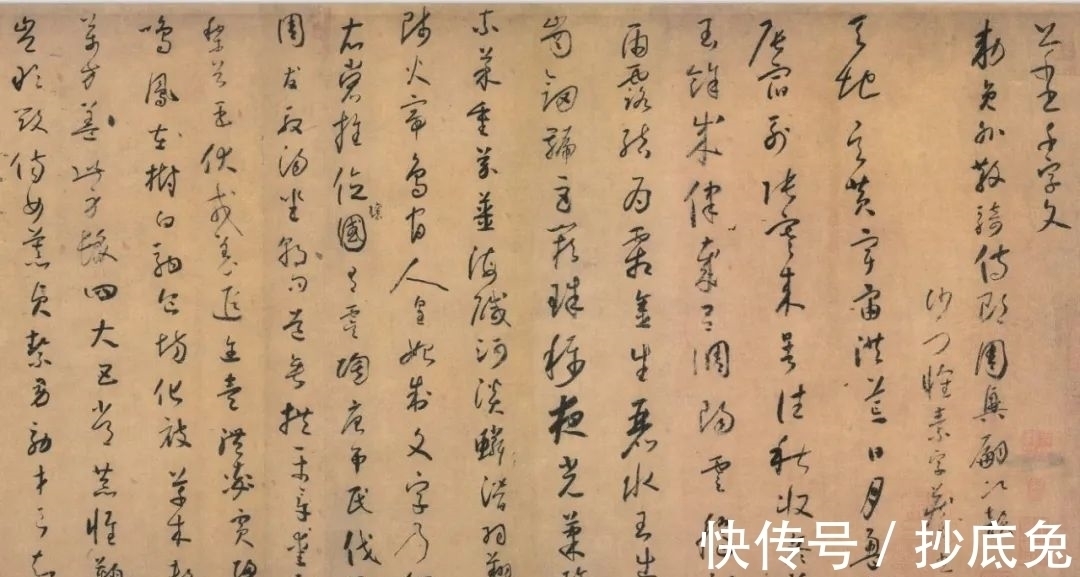 千字文
勅員外散騎侍郎周興嗣次韻
沙門懷素字藏真
天地玄黃宇宙洪荒日月盈
辰宿列張寒來暑往秋收冬
餘成律歲呂調陽雲騰
雨露結為霜金生麗水玉出
崗劍號巨闕珠稱夜光菓珍
柰菜重芥薑海鹹河淡鱗潛羽翔
師火帝鳥官人皇始制文字乃
衣裳推位讓國有虞陶唐弔民伐
周發殷湯坐朝問道垂拱平章愛
黎首臣伏戎羌遐邇壹體率賓歸
鳴鳳在樹白駒食場化被草木賴
萬方蓋此身髮四大五常恭惟鞠
豈敢毀傷女慕貞潔男效才良知
快传号 / 抄底兔